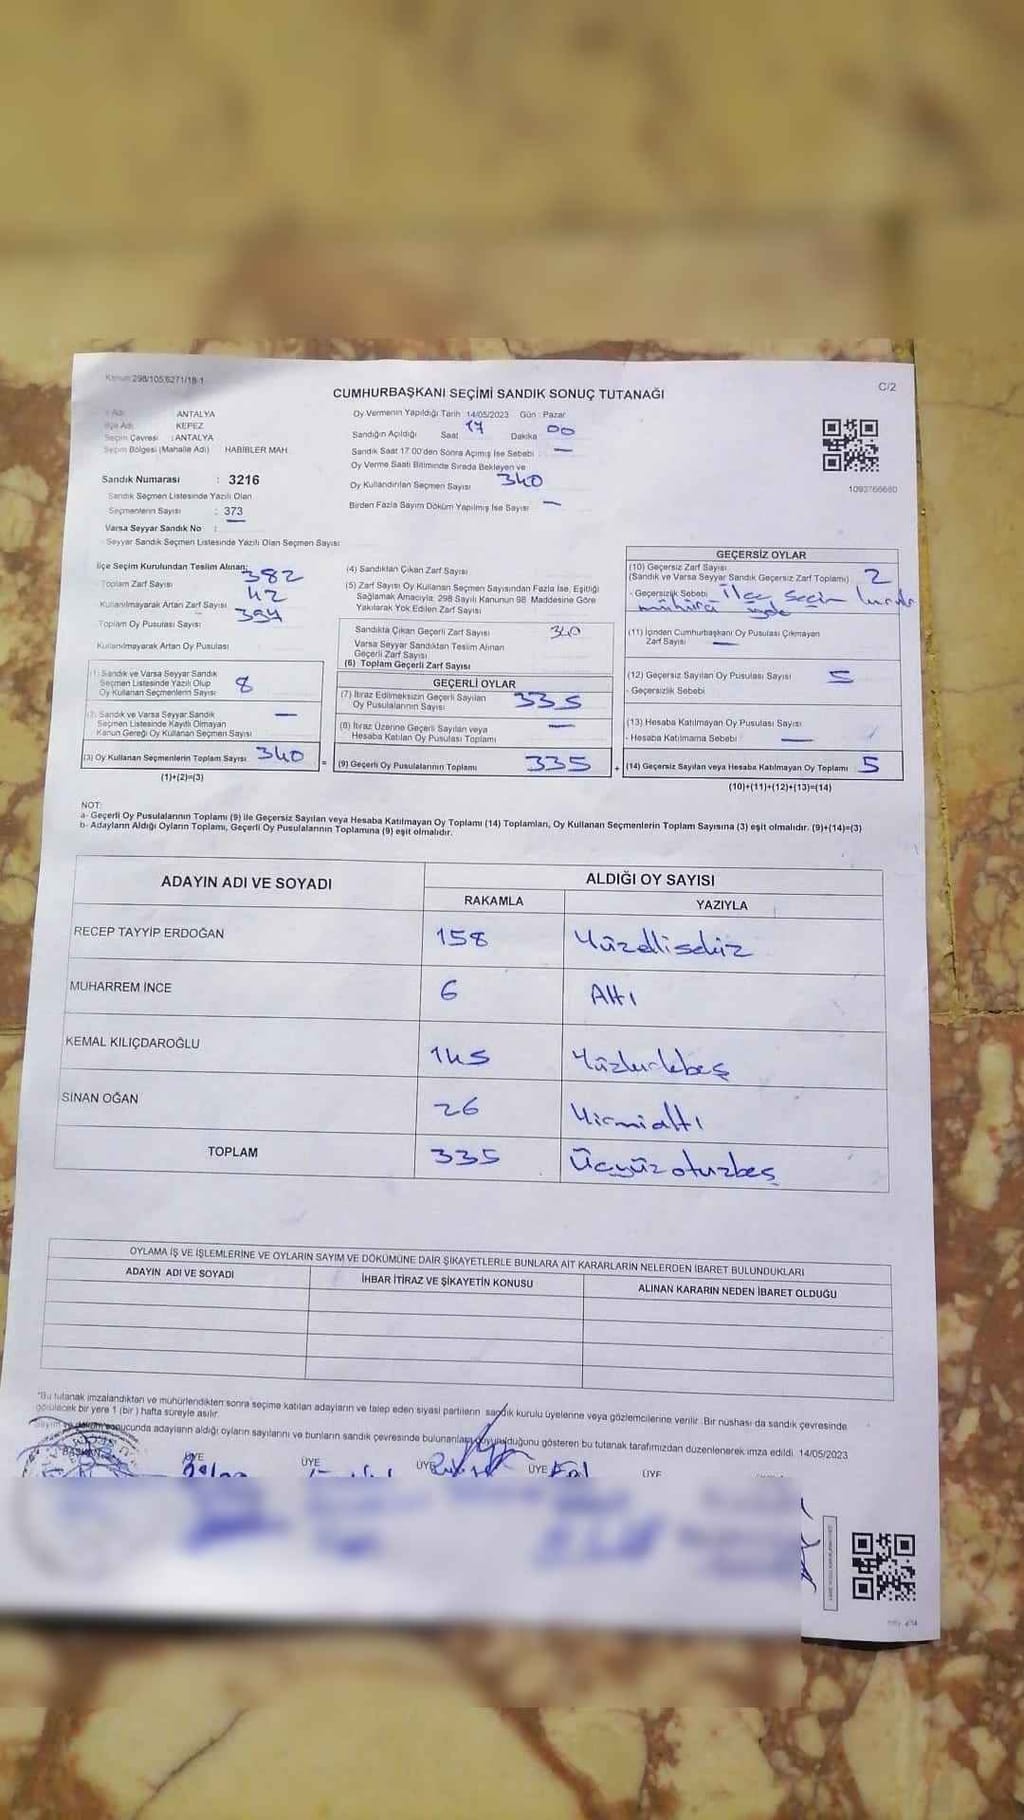 Kanun:298/105,6271/18-1
C/2
CUMHURBAŞKANI SEÇİMİ SANDIK SONUÇ TUTANAĞI
İl Adı ANTALYA
İlçe Adı KEPEZ
Seçim Çevresi : ANTALYA
Seçim Bölgesi (Mahalle Adı) HABİBLER MAH.
Oy Vermenin Yapıldığı Tarih 14/05/2023 Gün : Pazar
Sandığın Açıldığı Saat 17 Dakika 00
Sandık Saat 17:00'den Sonra Açımış İse Sebebi : —
Oy Verme Saati Bitiminde Sırada Bekleyen ve
Oy Kullandırılan Seçmen Sayısı 340
Birden Fazla Sayım Döküm Yapılmış İse Sayısı —
1093766680
Sandık Numarası : 3216
Sandık Seçmen Listesinde Yazılı Olan
Seçmenlerin Sayısı : 373
Varsa Seyyar Sandık No : —
Seyyar Sandık Seçmen Listesinde Yazılı Olan Seçmen Sayısı:
İlçe Seçim Kurulundan Teslim Alınan:
Toplam Zarf Sayısı 382
Kullanılmayarak Artan Zarf Sayısı 42
Toplam Oy Pusulası Sayısı 394
Kullanılmayarak Artan Oy Pusulası
(1) Sandık ve Varsa Seyyar Sandık
Seçmen Listesinde Yazılı Olup
Oy Kullanan Seçmenlerin Sayısı 8
(2) Sandık ve Varsa Seyyar Sandık
Seçmen Listesinde Kayıtlı Olmayan
Kanun Gereği Oy Kullanan Seçmen Sayısı —
(3) Oy Kullanan Seçmenlerin Toplam Sayısı 340
(1)+(2)=(3)
(4) Sandıktan Çıkan Zarf Sayısı
(5) Zarf Sayısı Oy Kullanan Seçmen Sayısından Fazla İse, Eşitliği
Sağlamak Amacıyla; 298 Sayılı Kanunun 98. Maddesine Göre
Yakılarak Yok Edilen Zarf Sayısı
Sandıkta Çıkan Geçerli Zarf Sayısı 340
Varsa Seyyar Sandıktan Teslim Alınan
Geçerli Zarf Sayısı
(6) Toplam Geçerli Zarf Sayısı
GEÇERLİ OYLAR
(7) İtiraz Edilmeksizin Geçerli Sayılan
Oy Pusulalarının Sayısı 335
(8) İtiraz Üzerine Geçerli Sayılan veya
Hesaba Katılan Oy Pusulası Toplamı —
= (9) Geçerli Oy Pusulalarının Toplamı 335
GEÇERSİZ OYLAR
(10) Geçersiz Zarf Sayısı
(Sandık ve Varsa Seyyar Sandık Geçersiz Zarf Toplamı) 2
- Geçersizlik Sebebi İlçe Seçim
mührü
(11) İçinden Cumhurbaşkanı Oy Pusulası Çıkmayan
Zarf Sayısı —
(12) Geçersiz Sayılan Oy Pusulası Sayısı 5
- Geçersizlik Sebebi
(13) Hesaba Katılmayan Oy Pusulası Sayısı
- Hesaba Katılmama Sebebi —
+ (14) Geçersiz Sayılan veya Hesaba Katılmayan Oy Toplamı 5
(10)+(11)+(12)+(13)=(14)
NOT:
a- Geçerli Oy Pusulalarının Toplamı (9) ile Geçersiz Sayılan veya Hesaba Katılmayan Oy Toplamı (14) Toplamları, Oy Kullanan Seçmenlerin Toplam Sayısına (3) eşit olmalıdır. (9)+(14)=(3)
b- Adayların Aldığı Oyların Toplamı, Geçerli Oy Pusulalarının Toplamına (9) eşit olmalıdır.
ADAYIN ADI VE SOYADI
ALDIĞI OY SAYISI
RAKAMLA YAZIYLA
RECEP TAYYİP ERDOĞAN 158 Yüzellisekiz
MUHARREM İNCE 6 Altı
KEMAL KILIÇDAROĞLU 145 Yüzkırkbeş
SİNAN OĞAN 26 Yirmialtı
TOPLAM 335 Üçyüzotuzbeş
OYLAMA İŞ VE İŞLEMLERİNE VE OYLARIN SAYIM VE DÖKÜMÜNE DAİR ŞİKAYETLERLE BUNLARA AİT KARARLARIN NELERDEN İBARET BULUNDUKLARI
ADAYIN ADI VE SOYADI İHBAR İTİRAZ VE ŞİKAYETİN KONUSU ALINAN KARARIN NEDEN İBARET OLDUĞU
"Bu tutanak imzalandıktan ve mühürlendikten sonra seçime katılan adayların ve talep eden siyasi partilerin sandık kurulu üyelerine veya gözlemcilerine verilir. Bir nüshası da sandık çevresinde
görülecek bir yere 1 (bir) hafta süreyle asılır.
sonucunda adayların aldığı oyların sayılarını ve bunların sandık çevresinde bulunanlara duyurulduğunu gösteren bu tutanak tarafımızdan düzenlenerek imza edildi. 14/05/2023
BAŞKAN ÜYE ÜYE ÜYE ÜYE ÜYE